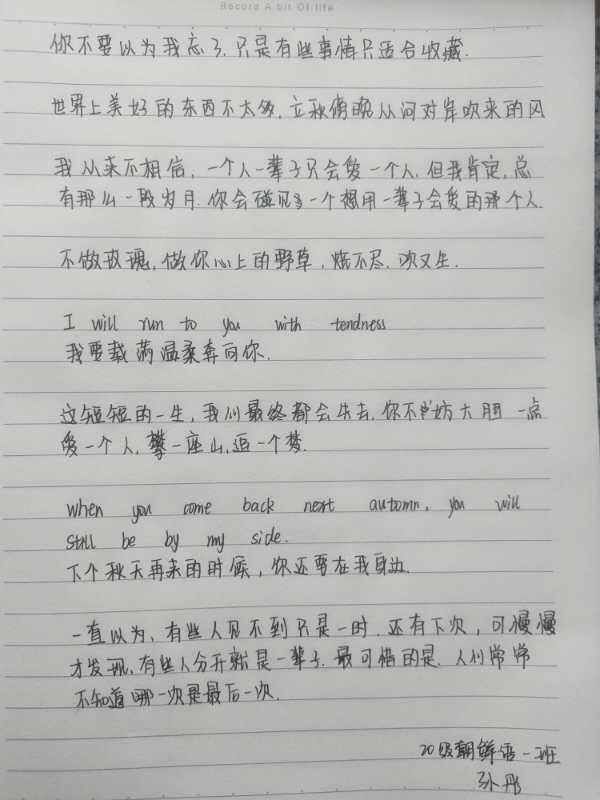 Record A bit Of life
你不要以为我忘了.只是有些事情只适合收藏.
世界上美好的东西不太多,立秋傍晚从河对岸吹来的风
我从来不相信,一个人一辈子只会爱一个人.但我肯定,总
有那么一段岁月.你会碰见一个想用一辈子会爱的那个人.
不做玫瑰,做你心上的野草,烧不尽.吹又生.
I will run to you with tendness
我要载满温柔奔向你.
这短短的一生,我们最终都会失去.你不妨大胆一点
爱一个人,攀一座山,追一个梦.
when you come back next automn, you will
still be by my side.
下个秋天再来的时候,你还要在我身边.
一直以为,有些人见不到只是一时.还有下次,可慢慢
才发现,有些人分开就是一辈子.最可惜的是.人们常常
不知道哪一次是最后一次.
20级朝鲜语一班
孙彤